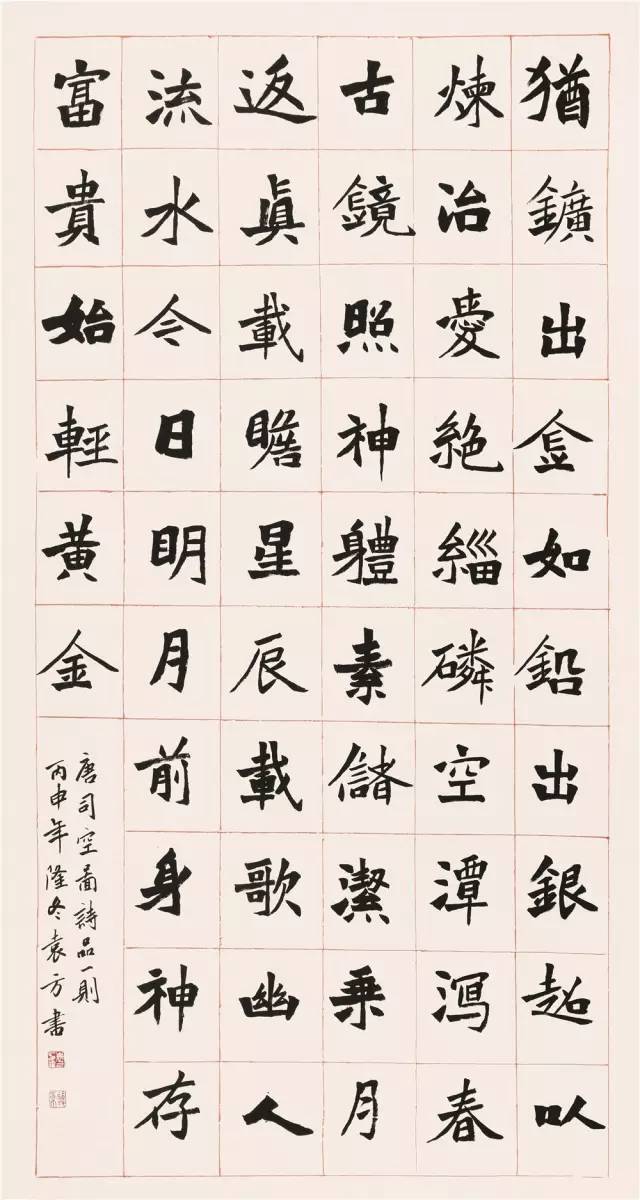 猶鑛出金如鉛出銀超以
煉冶愛絶緇磷空潭瀉春
古鏡照神軆素儲潔乗月
返眞載瞻星辰載歌幽人
流水今日明月前身神存
富貴始輕黄金
唐司空圖詩品一則
丙申年隆冬袁方書